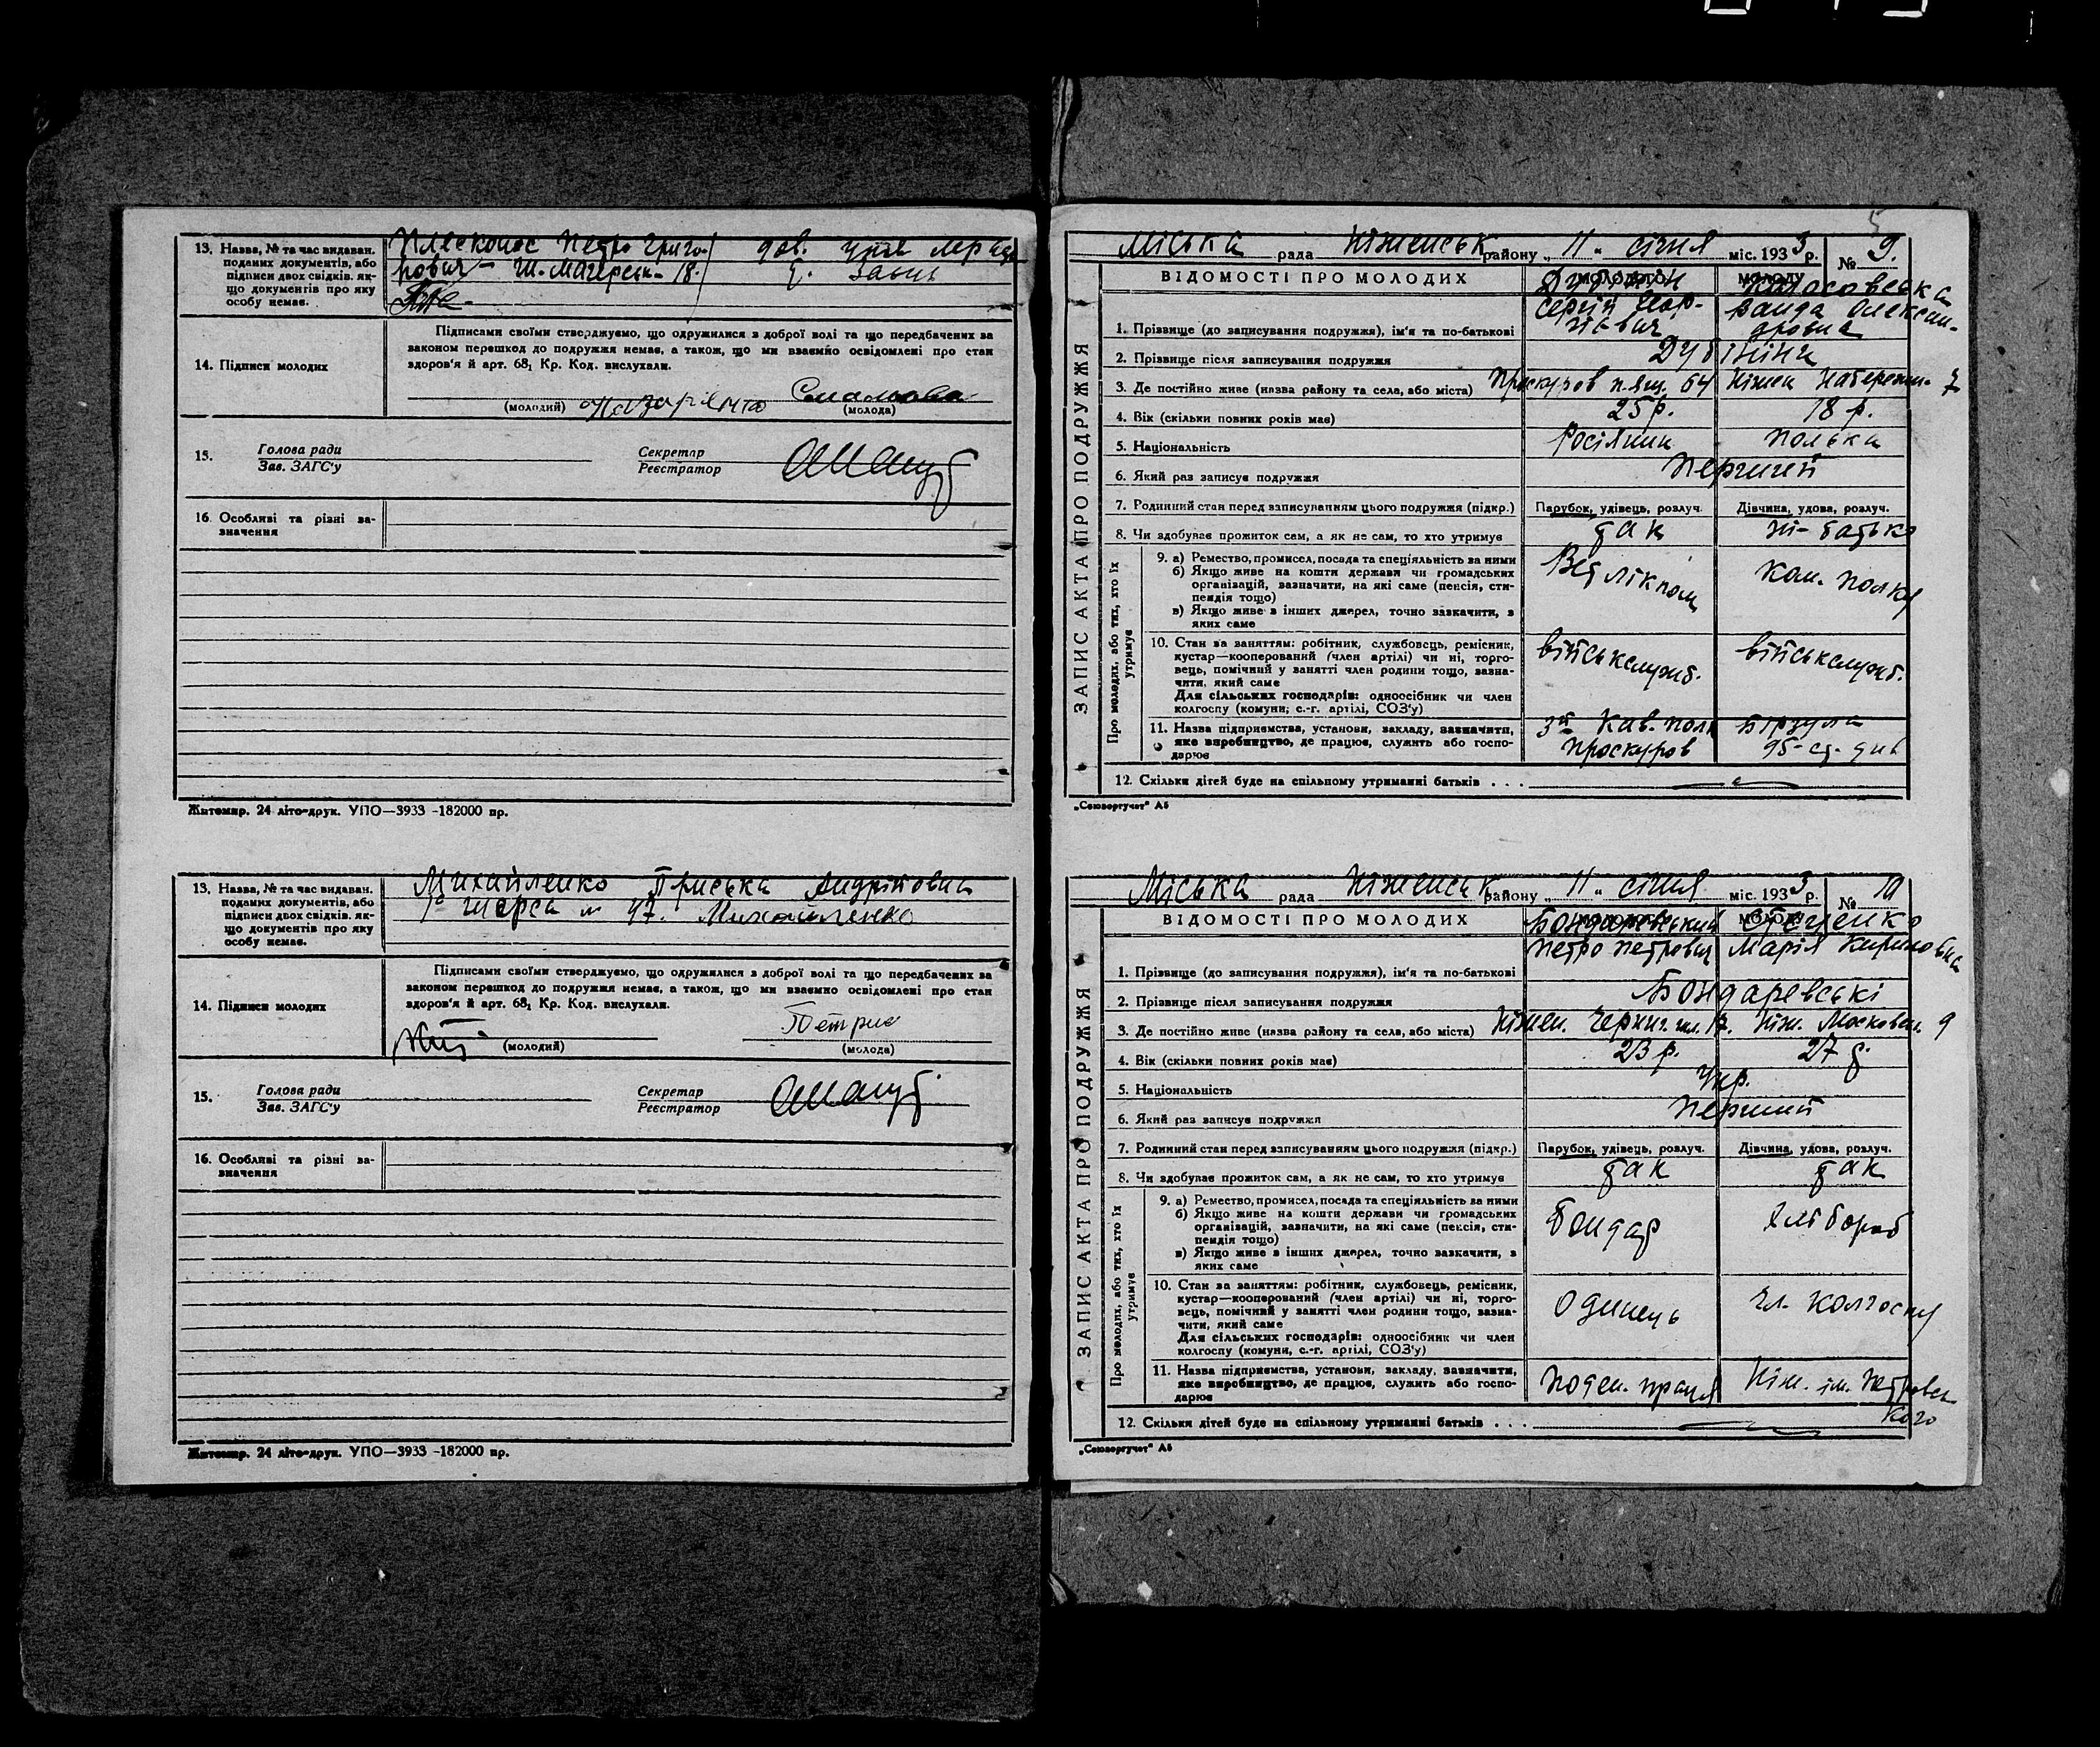 13. Назва, № та час видаван. поданих документів, або підписи двох свідків, якщо документів про яку особу немає.
Петро Григо-
рович - 18.
14. Підписи молодих
Підписами своїми стверджуємо, що одружилися з доброї волі та що передбачених за
законом перешкод до подружжя немає, а також, що ми взаємно освідомлені про стан
здоров'я й арт. 68₁ Кр. Код. вислухали.
(молодий)
(молода)
15. Голова ради
Зав. ЗАГС'у
Секретар
Реєстратор
16. Особливі та різні за-
значення
Житомир. 24 літо-друк. УПО—3933 -182000 пр.
13. Назва, № та час видаван. поданих документів, або підписи двох свідків, якщо документів про яку особу немає.
Михайленко Приська Андріївна
Шорса № 47. Михайленко
14. Підписи молодих
Підписами своїми стверджуємо, що одружилися з доброї волі та що передбачених за
законом перешкод до подружжя немає, а також, що ми взаємно освідомлені про стан
здоров'я й арт. 68₁ Кр. Код. вислухали.
(молодий)
(молода)
15. Голова ради
Зав. ЗАГС'у
Секретар
Реєстратор
16. Особливі та різні за-
значення
Житомир. 24 літо-друк. УПО—3933 -182000 пр.
5
Міська рада Ніженськ району „ 11 " січня міс. 1933 р. № 9.
ЗАПИС АКТА ПРО ПОДРУЖЖЯ
ВІДОМОСТІ ПРО МОЛОДИХ
Сергій Геор-
гієвич
Ванда Олексан-
дровна
1. Прізвище (до записування подружжя), ім'я та по-батькові
2. Прізвище після записування подружжя Дубініни
3. Де постійно живе (назва району та села, або міста) Проскуров п. ящ. 64 Ніжен Набережн. 7
4. Вік (скільки повних років має) 25 р. 18 р.
5. Національність Росіянин Полька
6. Який раз записує подружжя Перший
7. Родинний стан перед записуванням цього подружжя (підкр.) Парубок, удівець, розлуч. Дівчина, удова, розлуч.
8. Чи здобуває прожиток сам, а як не сам, то хто утримує так ні - батько
Про молодих, або тих, хто їх утримує
9. а) Ремество, промисел, посада та спеціяльність за ними
б) Якщо живе на кошти держави чи громадських
організацій, зазначити, на які саме (пенсія, сти-
пендія тощо)
в) Якщо живе з інших джерел, точно зазначити, з
яких саме
Вет лікпом
ком. полку
10. Стан за заняттям: робітник, службовець, ремісник,
кустар—кооперований (член артілі) чи ні, торго-
вець, помічний у занятті член родини тощо, зазна-
чити, який саме
Для сільських господарів: одноосібник чи член
колгоспу (комуни, с.-г. артілі, СОЗ'у)
військслужб.
військслужб.
11. Назва підприємства, установи, закладу, зазначити,
яке виробництво, де працює, служить або госпо-
дарює
3й Кав. полк
Проскуров
Бірзула
95-
12. Скільки дітей буде на спільному утриманні батьків . . .
„Союзоргучет" А5
Міська рада Ніженськ району „ 11 " січня міс. 1933 р. № 10
ЗАПИС АКТА ПРО ПОДРУЖЖЯ
ВІДОМОСТІ ПРО МОЛОДИХ
Бондаревський
Петро Петрович
Марія Кириловна
1. Прізвище (до записування подружжя), ім'я та по-батькові
2. Прізвище після записування подружжя Бондаревські
3. Де постійно живе (назва району та села, або міста) Ніжен. Черниг. шл. 17. Ніж. Московск. 9
4. Вік (скільки повних років має) 23 р. 27 р.
5. Національність Укр.
6. Який раз записує подружжя Перший
7. Родинний стан перед записуванням цього подружжя (підкр.) Парубок, удівець, розлуч. Дівчина, удова, розлуч.
8. Чи здобуває прожиток сам, а як не сам, то хто утримує так так
Про молодих, або тих, хто їх утримує
9. а) Ремество, промисел, посада та спеціяльність за ними
б) Якщо живе на кошти держави чи громадських
організацій, зазначити, на які саме (пенсія, сти-
пендія тощо)
в) Якщо живе з інших джерел, точно зазначити, з
яких саме
Бондар
Хлібороб
10. Стан за заняттям: робітник, службовець, ремісник,
кустар—кооперований (член артілі) чи ні, торго-
вець, помічний у занятті член родини тощо, зазна-
чити, який саме
Для сільських господарів: одноосібник чи член
колгоспу (комуни, с.-г. артілі, СОЗ'у)
Одинець
чл. колгоспу
11. Назва підприємства, установи, закладу, зазначити,
яке виробництво, де працює, служить або госпо-
дарює
Поден. праця
Ніж. ім. Петровсь-
кого
12. Скільки дітей буде на спільному утриманні батьків . . .
„Союзоргучет" А5